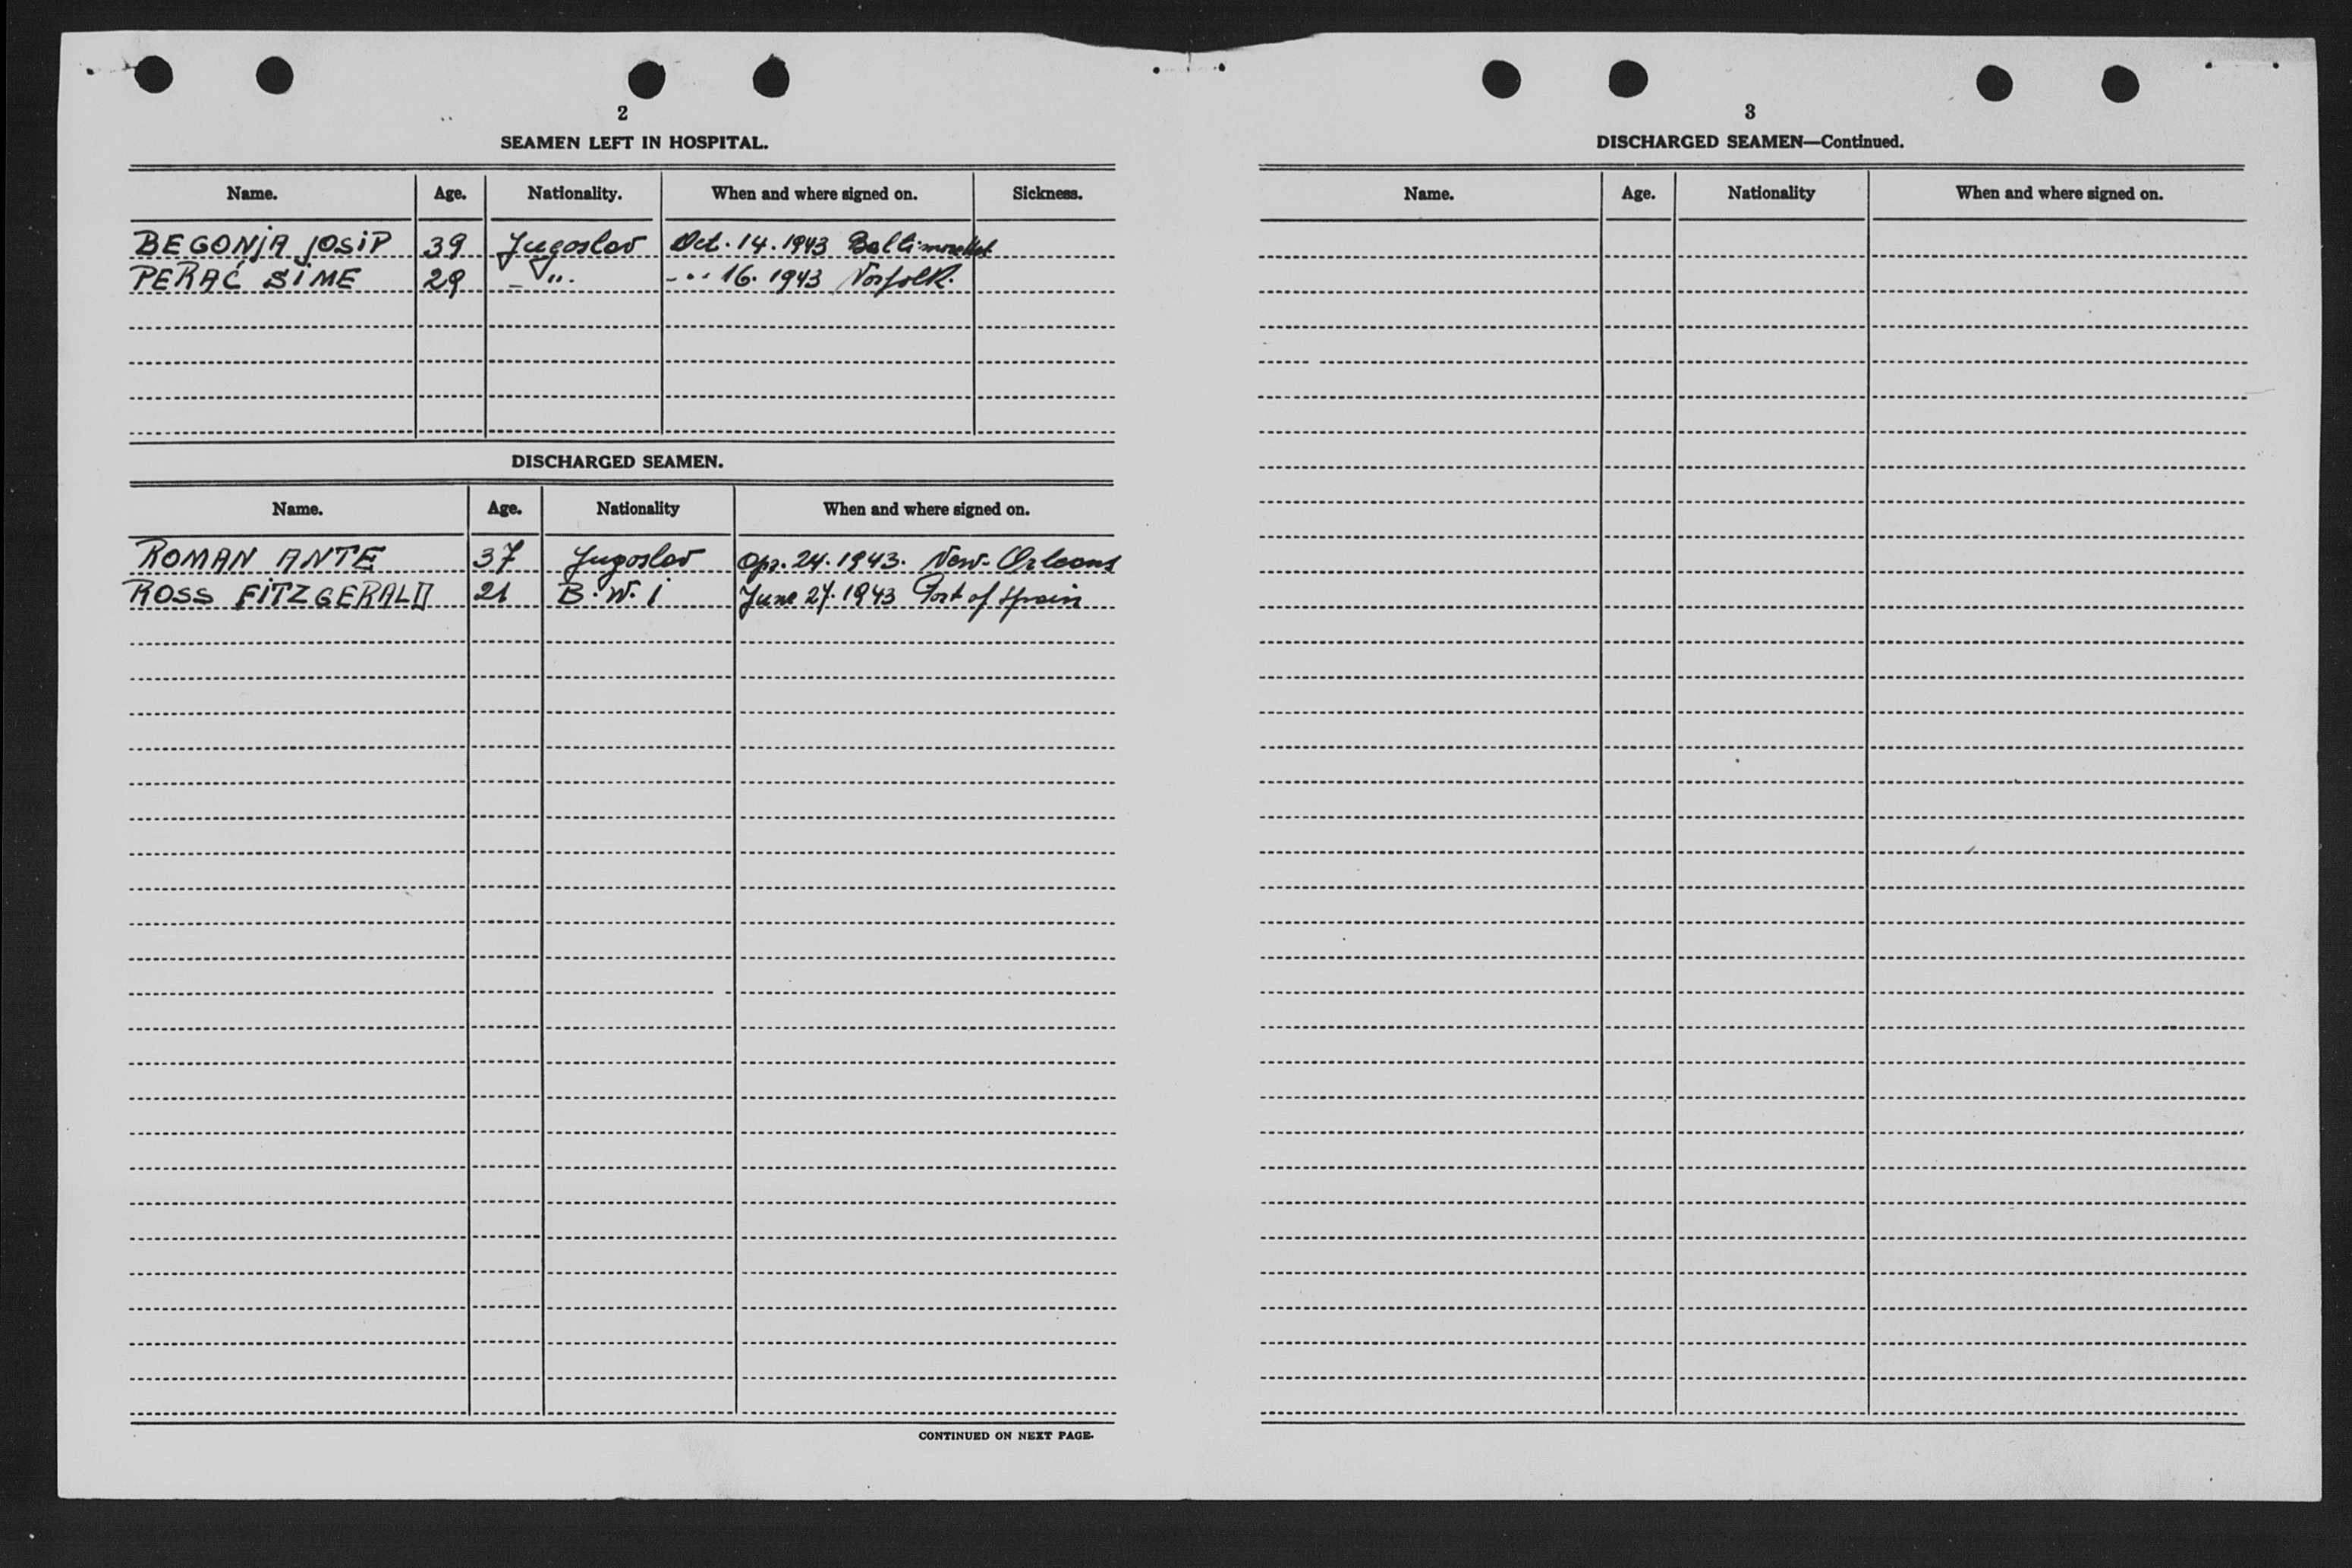 2
SEAMEN LEFT IN HOSPITAL.
Name. Age. Nationality. When and where signed on. Sickness.
BEGONJA JOSIP 39 Jugoslav Oct. 14. 1943 Baltimore
PERAĆ SIME 29 - " - - " 16. 1943 Norfolk.
DISCHARGED SEAMEN.
Name. Age. Nationality When and where signed on.
ROMAN ANTE 37 Jugoslav Apr. 24. 1943. New-Orleans
ROSS FITZGERALD 21 B.W.I June 27. 1943 Port of Spain
CONTINUED ON NEXT PAGE.
3
DISCHARGED SEAMEN—Continued.
Name. Age. Nationality When and where signed on.